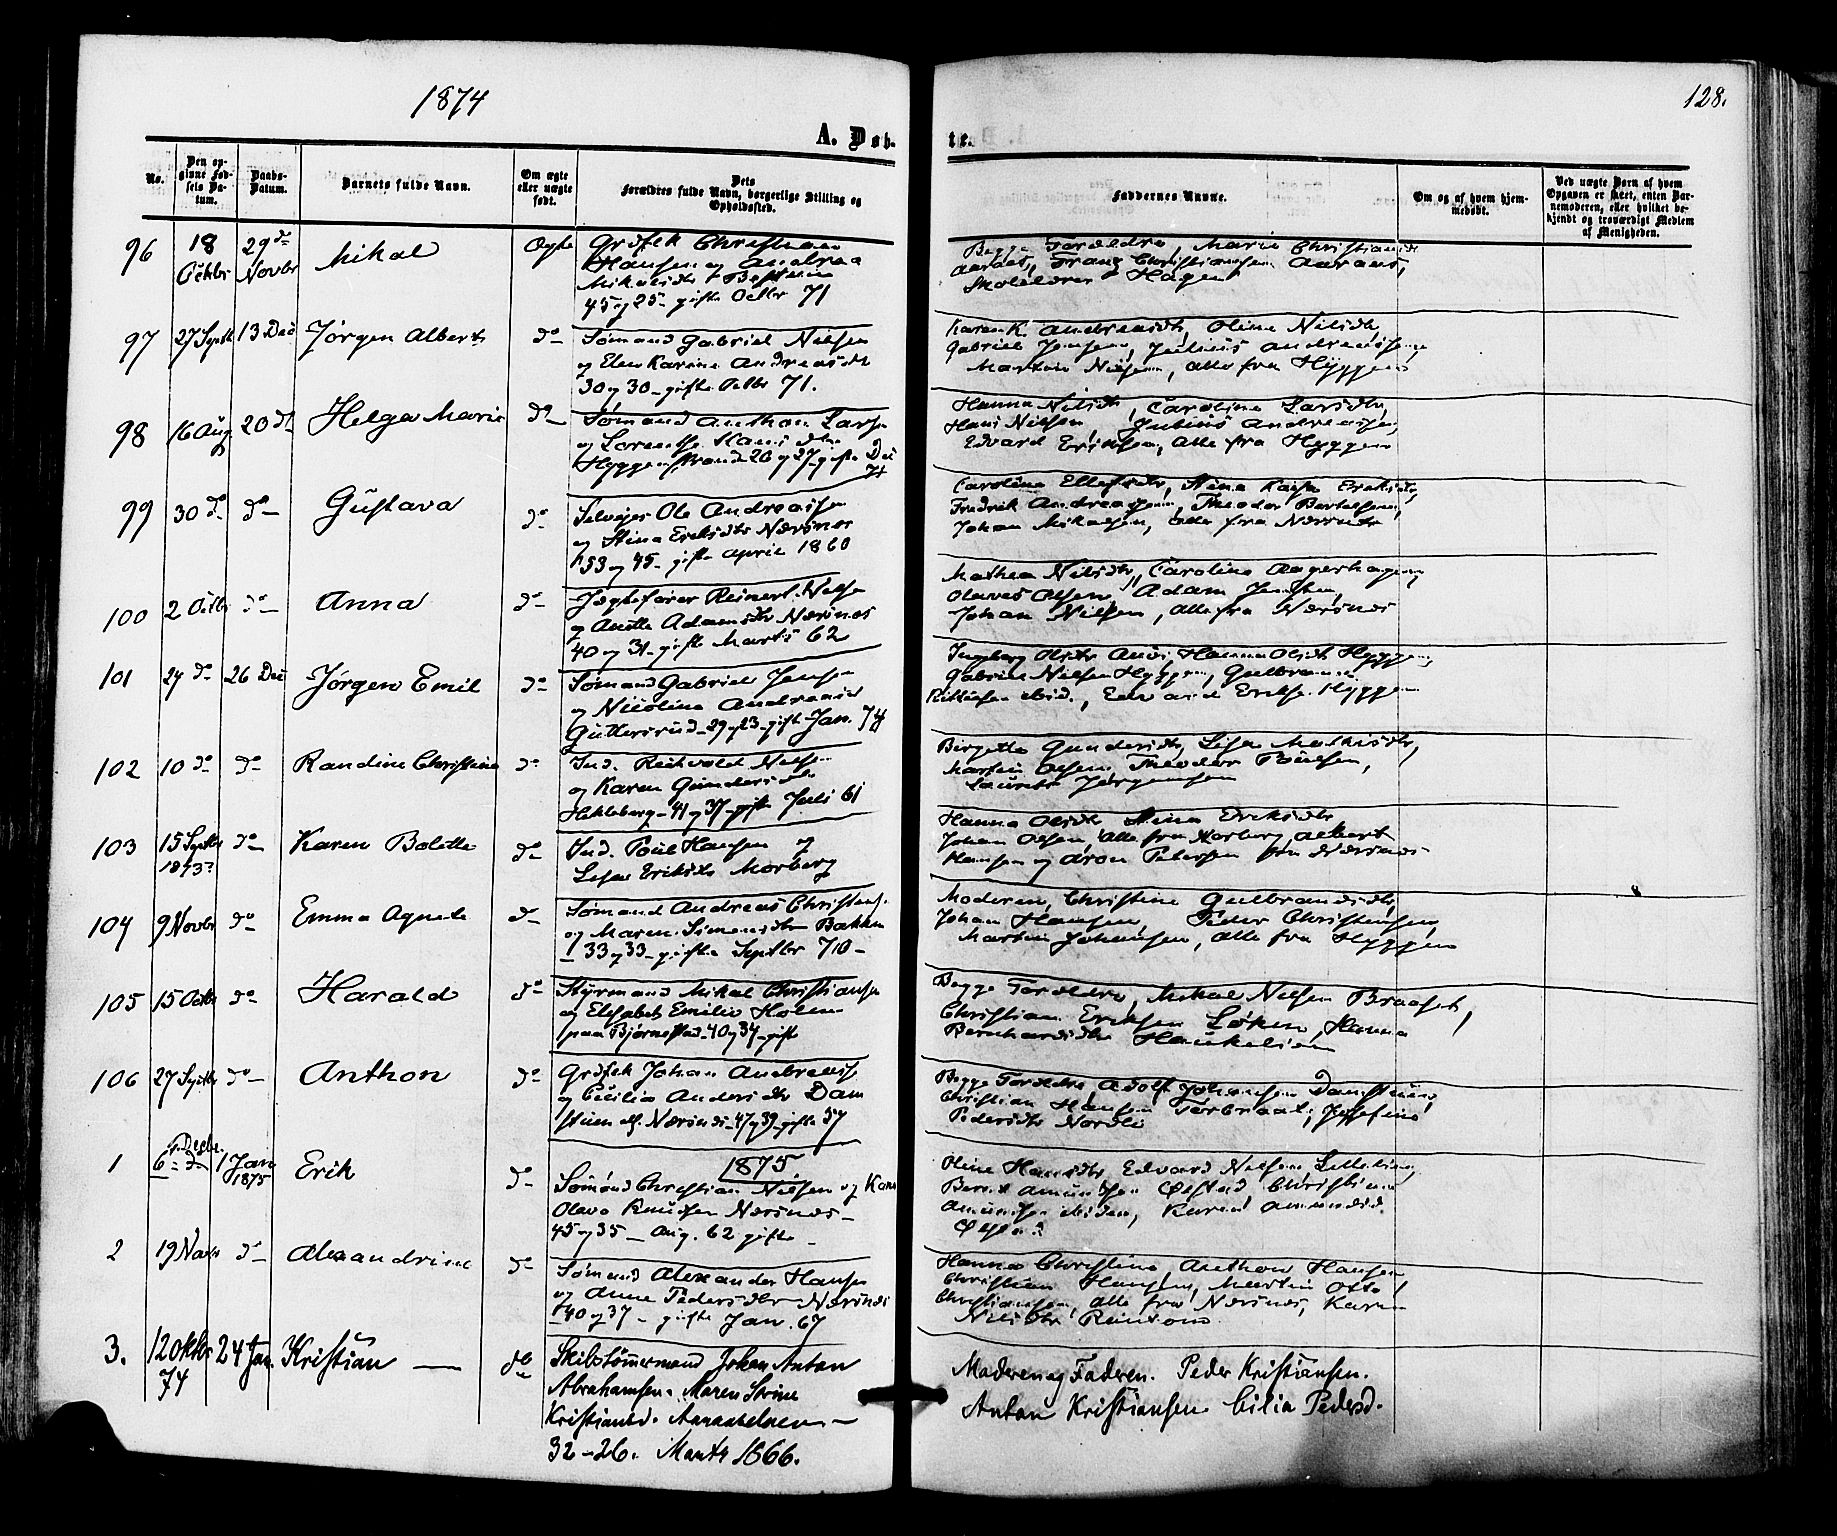 1874
128.
A. Døb-
te.
No.
Den op-
givne Fød-
sels Da-
tum.
Daabs-
Datum.
Barnets fulde Navn.
Om ægte
eller uægte
født.
Dets
Forældres fulde Navn, borgerlige Stilling og
Opholdssted.
Faddernes Navne.
Om og af hvem hjem-
medøbt.
Ved uægte Børn af hvem
Opgaven er skeet, enten Bar-
nemoderen, eller hvilket be-
kjendt og troværdigt Medlem
af Menigheden.
96 18 Octbr 29 do Novbr Mikal Ægte
Christian
Hansen og Andrea
45 og 25 - gifte Octbr 71
Begge Forældre, Marie
Frans Christiansen Aaraas,
Skolelærer Hagen
97 27 Septb 13 Dec Jørgen Albert do
Sømand Gabriel Nielsen
og Elen Karine Andreasdtr
30 og 30 - gifte Octbr 71.
Karen K. Andreasdtr, Oline Nilsdtr,
Gabriel Jensen, Julius Andreassen
Martin Nielsen, alle fra Hyggen
98 16 Aug 20 do Helga Marie do
Sømand Anthon Larsen
og Lorentse Hansdtr
Hyggenstrand 26 og 27 - gifte Dec
71
Hanna Nilsdtr, Caroline Larsdtr,
Hans Nielsen, Julius Andreasen,
Edvard Eriksen, alle fra Hyggen
99 30 do do Gustava do
Selveier Ole Andreassen
og Stina Eriksdtr Nærsnes
53 og 45 - gifte April 1860
Caroline Ellefsdtr, Stina Kaisa Eriksdtr,
Fredrik Andreassen, Theodor Bertelsen,
Johan Mikalsen, alle fra Nærsnes
100 2 Octbr do Anna do
Jægtefører Reinert Nilsen
og Anette Adamsdtr Nærsnes
40 og 31 - gifte Marts 62
Mathea Nilsdtr, Caroline Aagerhagen,
Olaves Olsen, Adam Jensen,
Johan Nielsen, alle fra Nærsnes
101 24 do 26 Dec Jørgen Emil do
Sømand Gabriel Jensen
og Nicoline Andreasd
Guttersrud - 29 og 23 - gifte Jan. 74
Ingeborg Olsdtr Hanna Olsdtr Hyggen,
Gabriel Nielsen Hyggen, Gulbrand
ibid., Edvard Eriks. Hyggen
102 10 do do Randine Christine do
Ind. Reinvold Nilsen
og Karen Gundersdtr
Hekleberg - 41 og 37 - gifte Juli 61
Birgitte Gundersdtr, Lisa Mathisdtr,
Martin Olsen, Theodor Poulsen,
Laurits Jørgensen
103 15 Septbr 1873? do Karen Bolette do
Ind. Poul Hansen og
Lisa Eriksdtr Morberg
Hanna Olsdtr Stina Eriksdtr
Johan Olsen, alle fra Morberg, Albert
Hansen og Aron Petersen fra Nærsnes
104 9 Novbr do Emma Agnete do
Sømand Andreas Christens.
og Maren Simensdtr Bakken
33 og 33 - gifte Septbr 70 -
Moderen, Christine Gulbrandsdtr,
Johan Hansen, Peder Christensen,
Martin Johansen, alle fra Hyggen
105 15 Octbr do Harald do
Styrmand Mikal Christiansen
og Elisabet Emilie Holm
paa Bjørnstad - 40 og 34 - gift
Begge Forældre, Mikal Nilsen Braaset,
Christian Eriksen Løken, Hanna
Bernhardsdtr Haukelien
106 27 Septbr do Anthon do
Johan Andreass
og Cicilia Andersdtr Dam
47 og 39 - gifte 57
Begge Forældre, Adolf Johansen Damstuen,
Christian Hansen Josefine
Pedersdtr Nordli
1875
1 6 do Decbr. 1 Jan 1875 Erik do
Sømand Christian Nielsen og Karen
Olava Knudsen Nærsnes -
45 og 35 - Aug. 62 gifte -
Oline Hansdtr, Edvard Nielsen
Bernt Amundsen Ølstad Christian
Amundsen ibiden, Karen Amundsd.
2 19 Novbr do Alexandrine do
Sømand Alexander Hansen
og Anne Pedersdtr Nærsnes
40 og 37 - gifte Jan. 67
Hanna Christine, Anthon Hansen
Christian Hansen, Martin Otto
Christiansen, alle fra Nærsnes, Karen
Nilsdtr
3. 12 Oktbr 74 24 Jan. Kristian — do
Skibstømmermand Johan Anton
Abrahamsen. Maren Sevine
Kristiansd.
32 - 26. Marts 1866.
Moderen og Faderen. Peder Kristiansen.
Anton Kristiansen Cilia Pedersd.